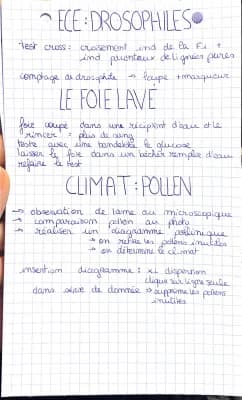 ECE : DROSOPHILES
test cross : croisement ind de la F1 +
ind parenteux de lignées pures
comptage des drosophile → loupe + marqueur
LE FOIE LAVÉ
foie coupé dans une récipient d'eau et le
rincer : plus de sang
teste avec une bandelette le glucose
laisser le foie dans un bécher remplie d'eau
refaire le test
CLIMAT : POLLEN
→ observation de lame au microscopique
→ comparaison pollen au photo
→ réaliser un diagramme pollinique
→ on retire les pollens inutiles
→ on détermine le climat
insertion diagramme : XL dispersion
clique sur ligne seule
dans série de donnée → supprime les pollens
inutiles